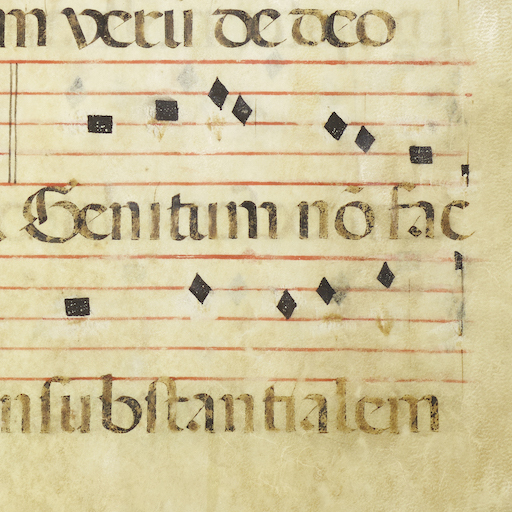 m verū de deo
Genitum nō fac
nsubstantialem